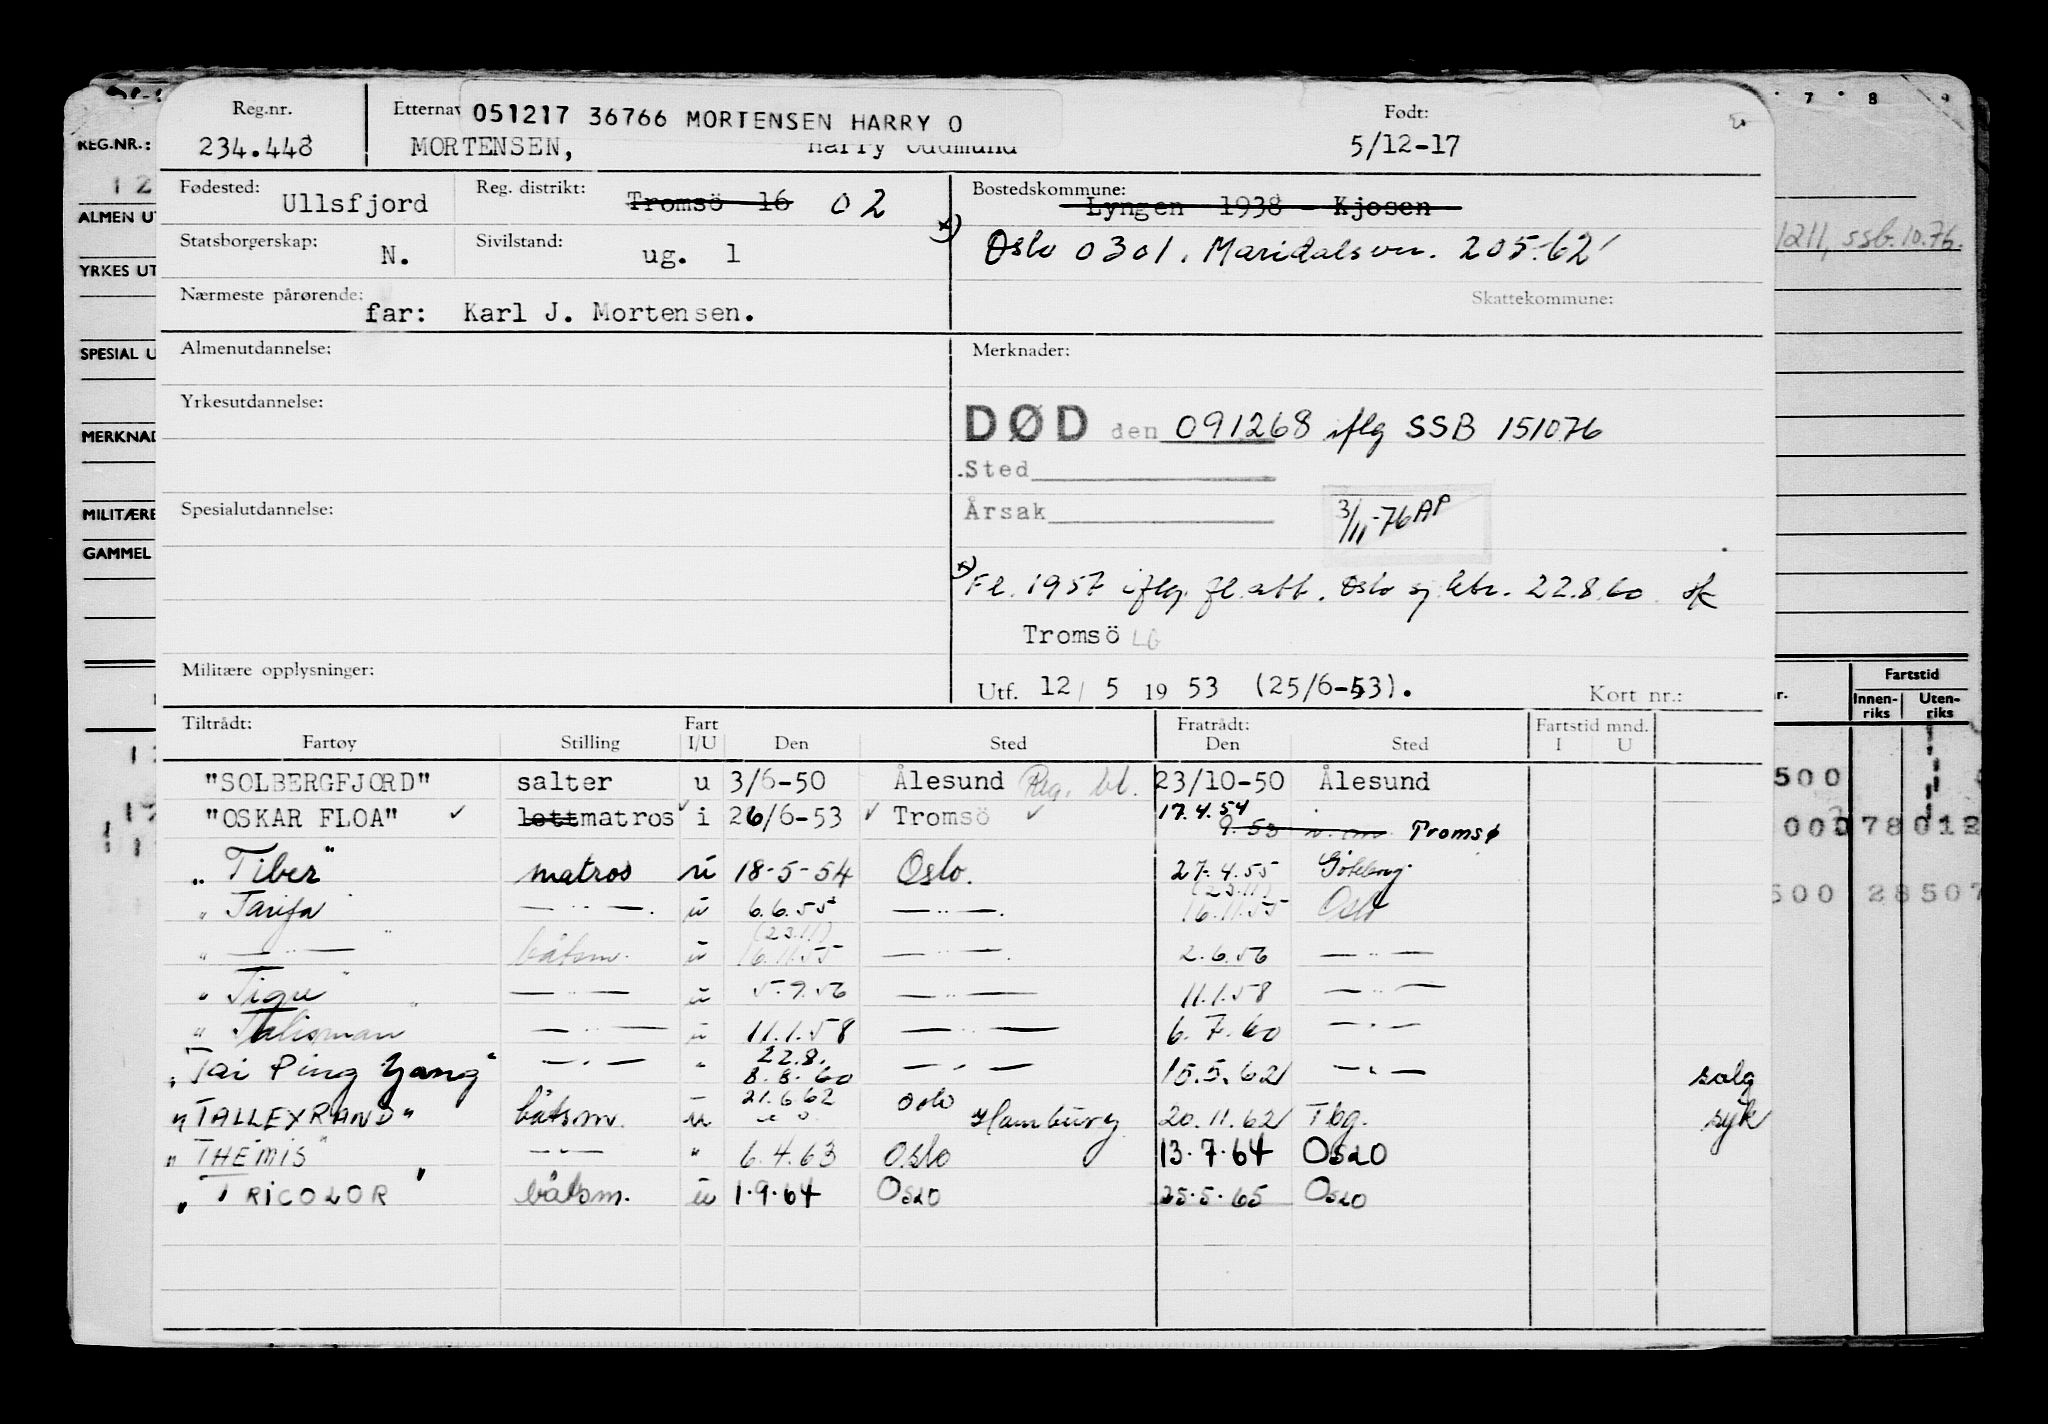 Reg.nr. Etternav 051217 36766 MORTENSEN HARRY O Født:
234.448 MORTENSEN, Harry Oddmund 5/12-17
Fødested: Ullsfjord Reg. distrikt: Tromsö 16 02 Bostedskommune: Lyngen 1938 - Kjosen
Statsborgerskap: N. Sivilstand: ug. 1 x) Oslo 0301. Maridalsvn. 205.-62
Nærmeste pårørende: far: Karl J. Mortensen. Skattekommune:
Almenutdannelse: Merknader:
Yrkesutdannelse:
DØD den 091268 iflg SSB 151076
Sted
Spesialutdannelse: Årsak 3/11-76 AP
x) Fl. 1957 iflg. fl.att. Oslo sj.ktr. 22.8.60
Tromsö LG
Militære opplysninger: Utf. 12/ 5 19 53 (25/6-53). Kort nr.:
Tiltrådt: Fart Fratrådt: Fartstid mnd.
Fartøy Stilling I/U Den Sted Den Sted I U
"SOLBERGFJORD" salter u 3/6-50 Ålesund Reg. bl. 23/10-50 Ålesund
"OSKAR FLOA" ✓ lettmatros ✓ i 26/6-53 ✓ Tromsö ✓ 17.4.54 9.53 Tromsø
"Tiber" matros u 18-5-54 Oslo. 27.4.55 Göteborg.
" Tarifa —"—. u 6.6.55 —"—. (23.11) 16.11.55 Oslo
" —"— " båtsm. u (23.11) 16.11.55 —"—. 2.6.56 —"—
" Tigre " —"— u 5.9.56 —"— 11.1.58 —"—
" Talisman " —"— u 11.1.58 —"— 6.7.60 —"—
"Tai Ping Yang" —"— " 22.8. 8.8.60 —"— 15.5.62 —"— salg
"TALLEYRAND" båtsm. u 21.6.62 Oslo Hamburg 20.11.62 Tbg. syk
"THEMIS" —"— " 6.4.63 Oslo 13.7.64 OSLO
"TRICOLOR" båtsm. u 1.9.64 OSLO 25.5.65 OSLO
REG.NR.:
12
ALMEN UT
YRKES UT
SPESIAL U
MERKNAD
MILITÆRE
GAMMEL
7 8 9
1211, ssb. 10.76.
Fartstid
r. Innen-riks Uten-riks
500
000 78012
500 28507